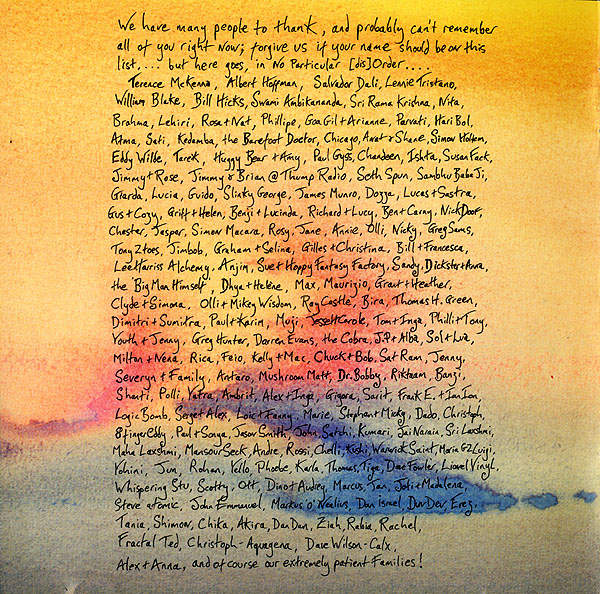 We have many people to thank, and probably can't remember
all of you right now; forgive us if your name should be on this
list.... but here goes, in No Particular [dis]Order....
Terence McKenna, Albert Hoffman, Salvador Dali, Lennie Tristano,
William Blake, Bill Hicks, Swami Ambikananda, Sri Rama Krishna, Nita,
Brahma, Lehiri, Rosa+Nat, Phillipe, Goa Gil+Arianne, Parvati, Hari Bol,
Atma, Sati, Kedamba, the Barefoot Doctor, Chicago, Avat+Shane, Simon Holtom,
Eddy Willbe, Tarek, Huggy Bear +Amy, Paul Gyss, Chandeen, Ishta, Susan Fack,
Jimmy+Rose, Jimmy+Brian @ Thump Radio, Seth Spun, Sambhu Baba Ji,
Giarda, Lucia, Guido, Slinky George, James Munro, Dozza, Lucas+Sastra,
Gus+Cozy, Griff+Helen, Benji+Lucinda, Richard+Lucy, Ben+Carny, Nick Doof,
Chester, Jasper, Simon Macara, Rosy, Jane, Annie, Olli, Nicky, Greg Sams,
Tony Ztoes, Jimbob, Graham+Selina, Gilles+Christina, Bill+Francesca,
Lee Harriss Alchemy, Anjin, Sue+Hoppy Fantasy Factory, Sandy, Dickster+Anna,
the Big Man Himself, Dhya+Helene, Max, Maurizio, Grant+Heather,
Clyde+Simona, Olli+Mikey Wisdom, Ray Castle, Bira, Thomas H. Green,
Dimitri+Sumitra, Paul+Karin, Muji, Jesse+Carole, Tom+Inga, Philli+Tony,
Youth+Jenny, Greg Hunter, Darren Evans, the Cobra, J.P.+Alba, Sol+Lua,
Miltan+Nena, Rica, Feio, Kelly+Mac, Chuck+Bob, Sat Ram, Jenny,
Severyn+Family, Antaro, Mushroom Matt, Dr. Bobby, Riktaam, Banzi,
Shanti, Polli, Yatra, Ambrit, Alex+Inga, Grigora, Sarit, Frank E. +Ian Ion,
Logic Bomb, Serge+Alex, Loic+Fanny, Marie, Stephan+Micky, Dado, Christoph,
8 finger Eddy, Paul+Sonya, Jason Smith, John, Satchi, Kumari, Jai Narain, Sri Laxshmi,
Maha Laxshmi, Mansour Seck, Andre, Rossi, Chelli, Kushi, Warwick Saint, Maria G2 Luigi,
Yohini, Jun, Rohan, Yello, Phoebe, Karla, Thomas, Tiga, Dave Fowler, Lionel Vinyl,
Whispering Stu, Scotty, Ott, Dino+Audrey, Marcus, Jan, Joli+Madalena,
Steve atomic, John Emmanuel, Markus O'Nealius, Dan Israel, DunDev, Erez,
Tania, Shimon, Chika, Akira, Dan Dan, Ziah, Rabia, Rachel,
Fractal Ted, Christoph-Aquagena, Dave Wilson-Calx,
Alex+Anna, and of course our extremely patient Families!